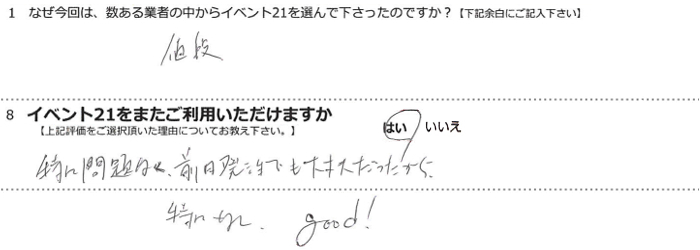 1 なぜ今回は、数ある業者の中からイベント21を選んで下さったのですか？【下記余白にご記入下さい】
値段
8 イベント21をまたご利用いただけますか
はい いいえ
【上記評価をご選択頂いた理由についてお教え下さい。】
特に問題なく、前日発注でも大丈夫だったから。
特になし、good!